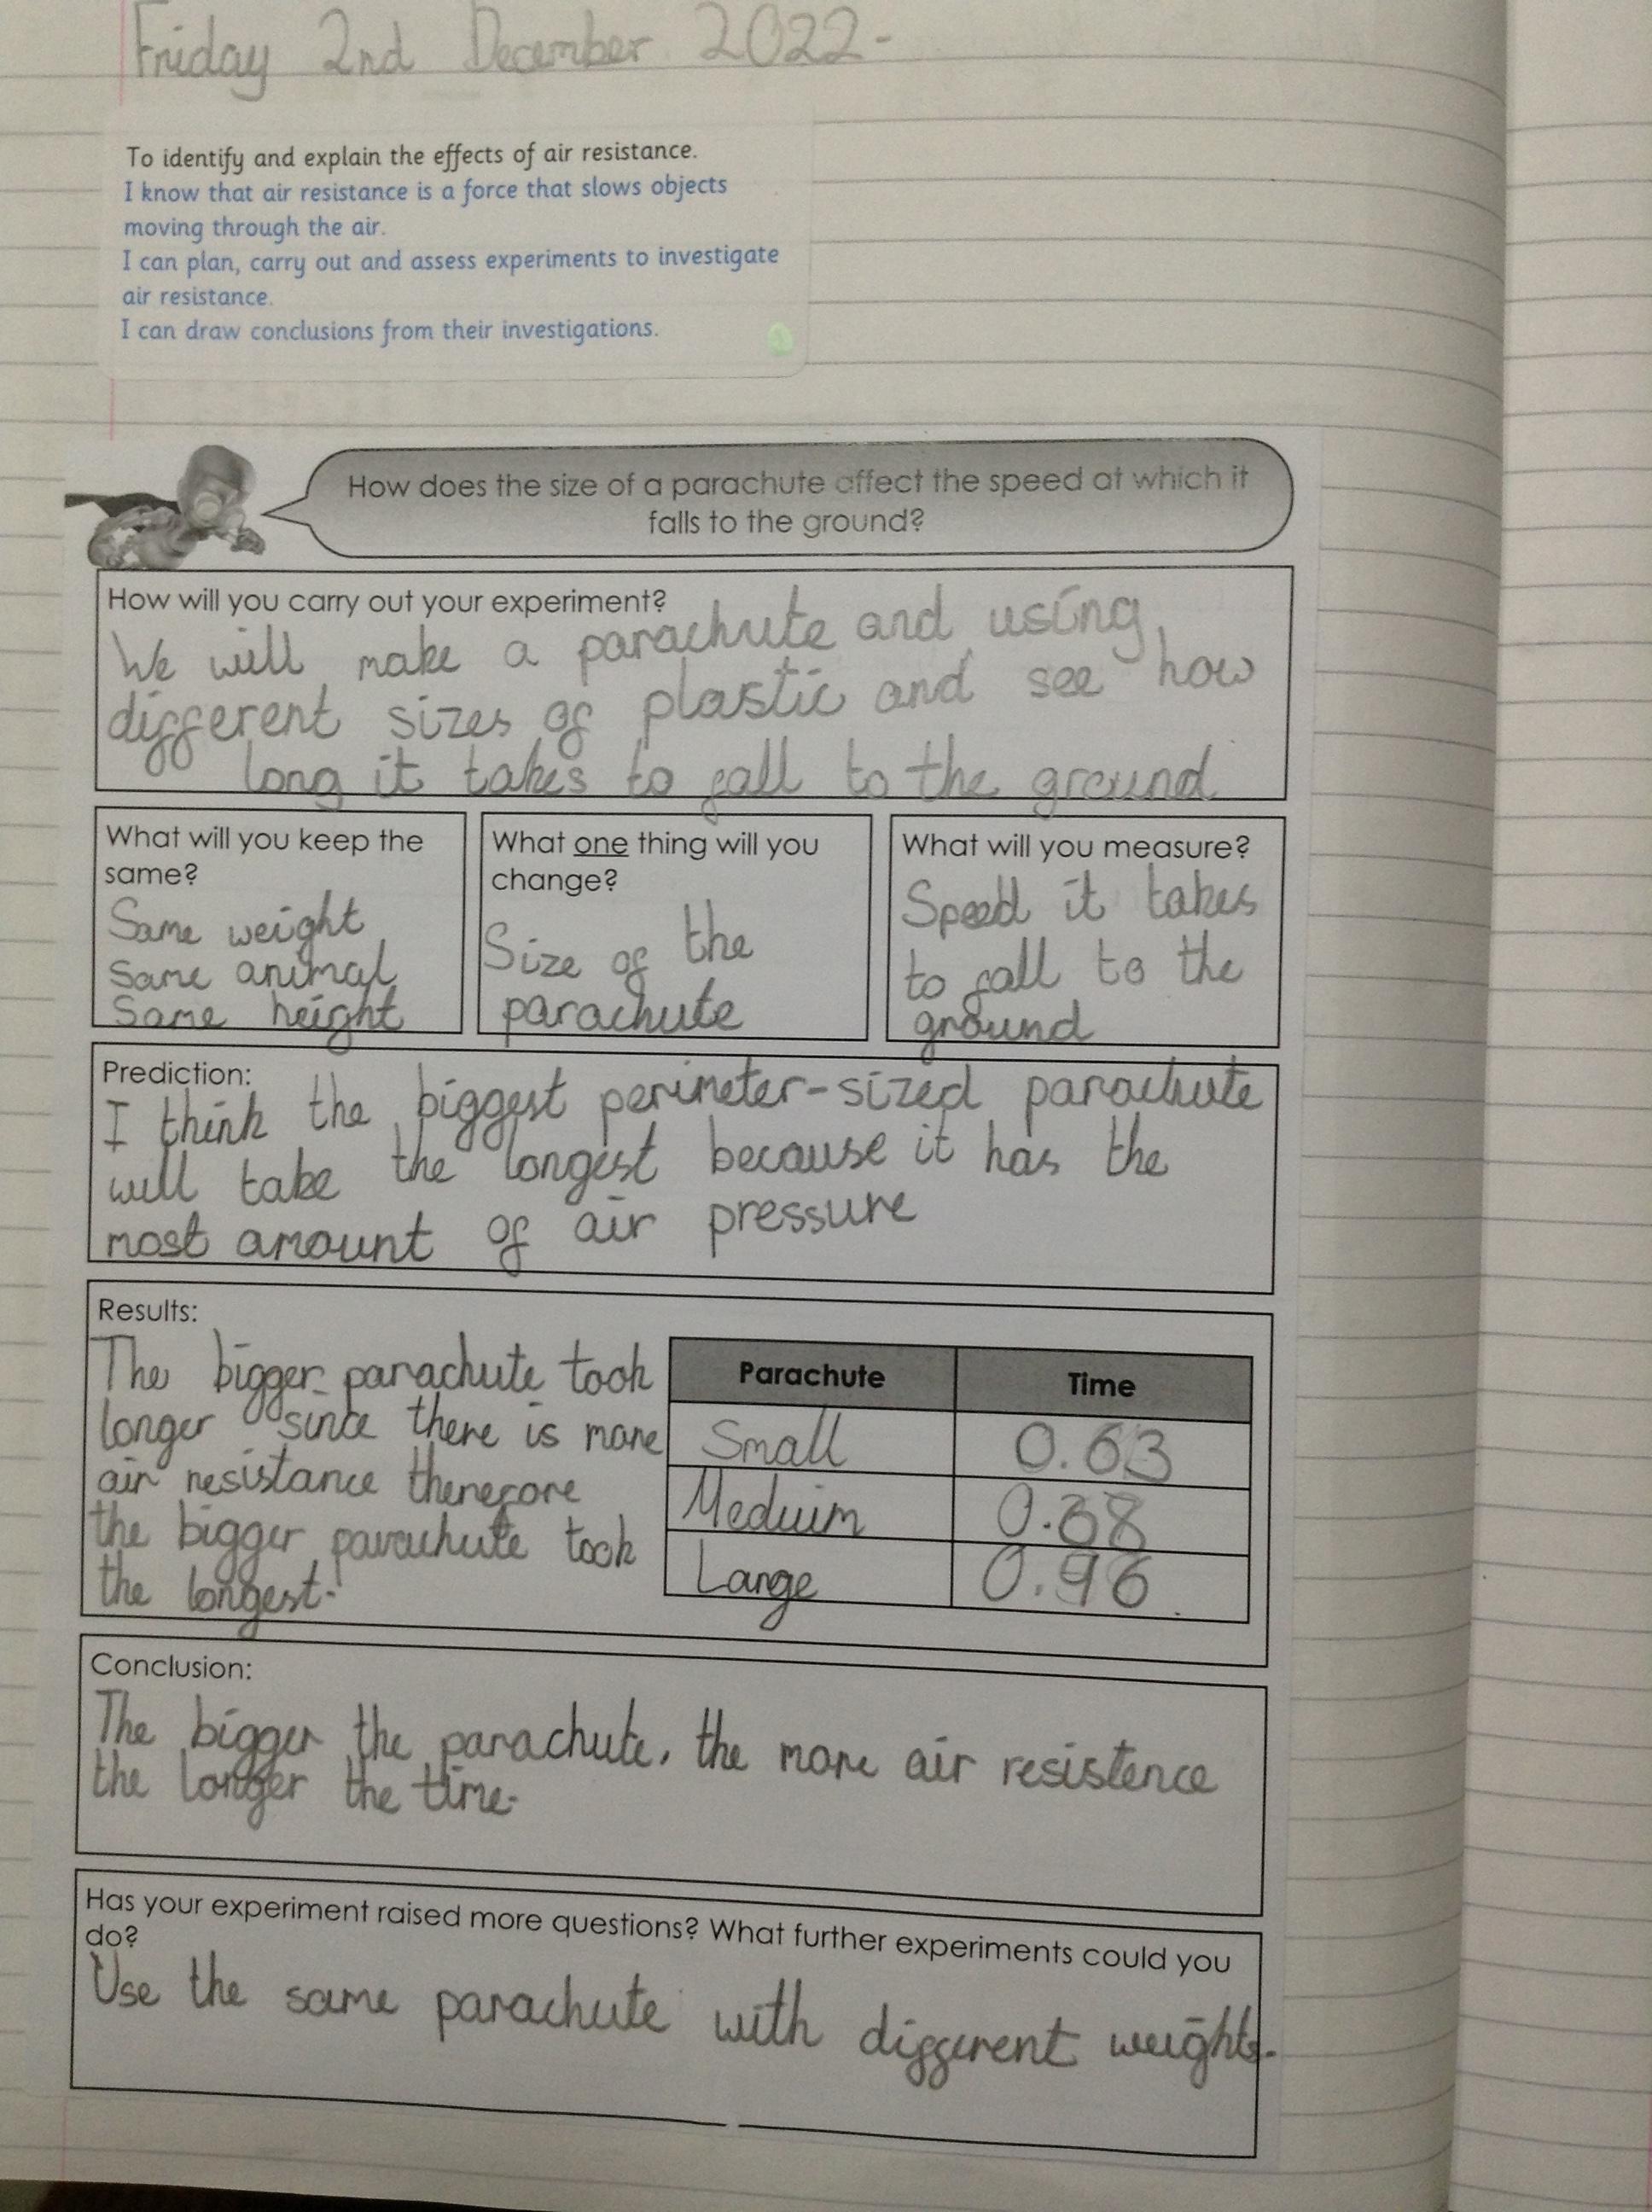 Friday 2nd December 2022-
To identify and explain the effects of air resistance.
I know that air resistance is a force that slows objects
moving through the air.
I can plan, carry out and assess experiments to investigate
air resistance.
I can draw conclusions from their investigations.
How does the size of a parachute affect the speed at which it
falls to the ground?
How will you carry out your experiment?
We will make a parachute and using
different sizes of plastic and see how
long it takes to fall to the ground
What will you keep the
same?
Same weight
Same animal
Same height
What one thing will you
change?
Size of the
parachute
What will you measure?
Speed it takes
to fall to the
ground
Prediction:
I think the biggest perimeter-sized parachute
will take the longest because it has the
most amount of air pressure
Results:
The bigger parachute took
longer since there is more
air resistance therefore
the bigger parachute took
the longest.
Parachute Time
Small 0.63
Meduim
Large 0.96
Conclusion:
The bigger the parachute, the more air resistence
the longer the time.
Has your experiment raised more questions? What further experiments could you
do?
Use the same parachute with different weights.